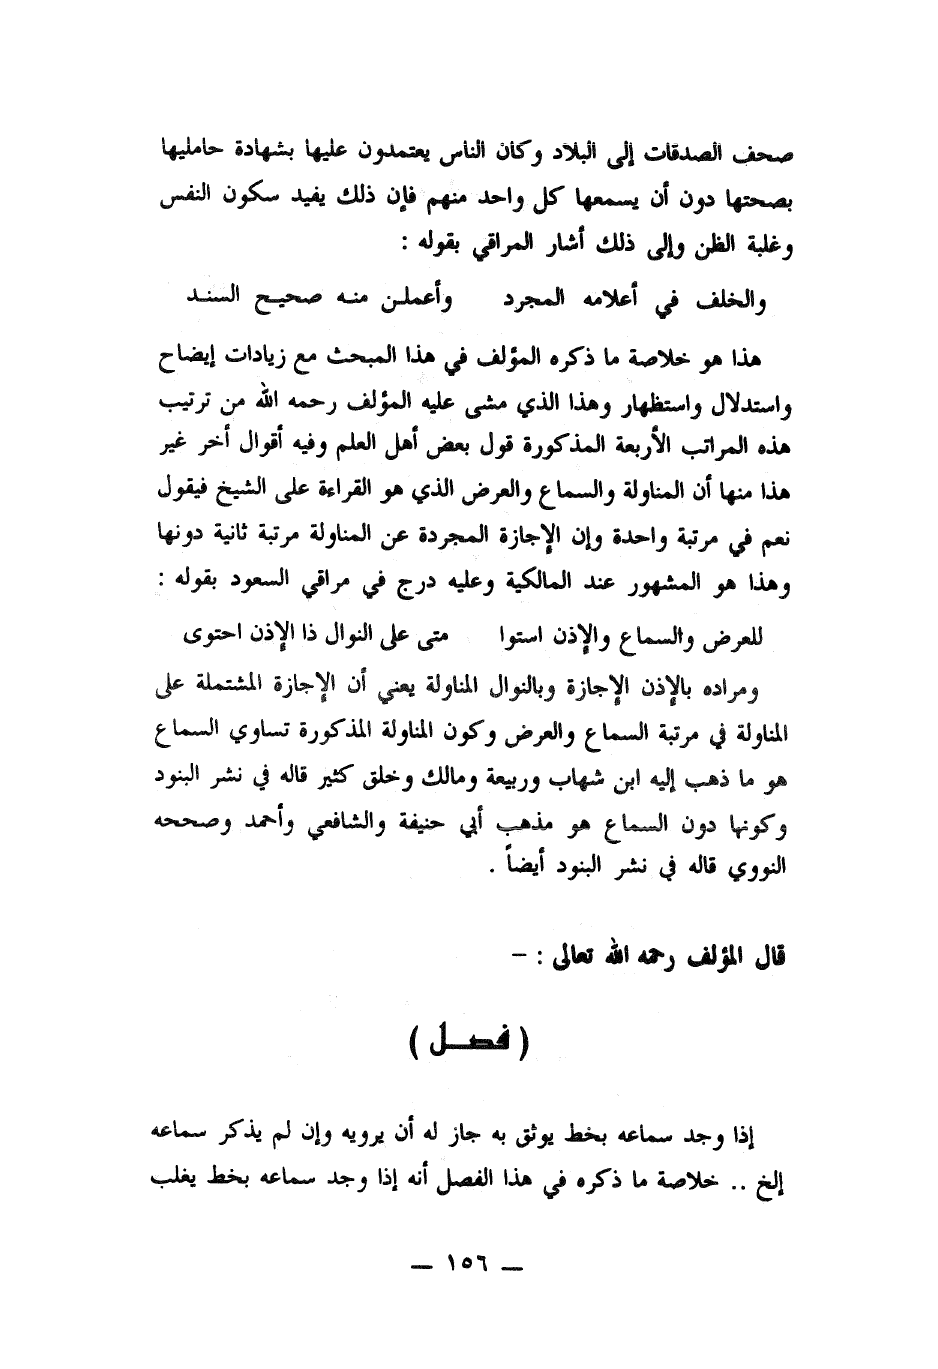 صحف الصدقات إلى البلاد وكان الناس يعتمدون عليها بشهادة حامليها
بصحتها دون أن يسمعها كل واحد منهم فإن ذلك يفيد سكون النفس
وغلبة الظن وإلى ذلك أشار المراقي بقوله :
والخلف في أعلامه المجرد وأعملن منه صحيح السند
هذا هو خلاصة ما ذكره المؤلف في هذا المبحث مع زيادات إيضاح
واستدلال واستظهار وهذا الذي مشى عليه المؤلف رحمه الله من ترتيب
هذه المراتب الأربعة المذكورة قول بعض أهل العلم وفيه أقوال أخر غير
هذا منها أن المناولة والسماع والعرض الذي هو القراءة على الشيخ فيقول
نعم في مرتبة واحدة وإن الإجازة المجردة عن المناولة مرتبة ثانية دونها
وهذا هو المشهور عند المالكية وعليه درج في مراقي السعود بقوله :
للعرض والسماع والإذن استوا متى على النوال ذا الإذن احتوى
ومراده بالإذن الإجازة وبالنوال المناولة يعني أن الإجازة المشتملة على
المناولة في مرتبة السماع والعرض وكون المناولة المذكورة تساوي السماع
هو ما ذهب إليه ابن شهاب وربيعة ومالك وخلق كثير قاله في نشر البنود
وكونها دون السماع هو مذهب أبي حنيفة والشافعي وأحمد وصححه
النووي قاله في نشر البنود أيضاً .
قال المؤلف رحمه الله تعالى : –
( فصل )
إذا وجد سماعه بخط يوثق به جاز له أن يرويه وإن لم يذكر سماعه
إلخ .. خلاصة ما ذكره في هذا الفصل أنه إذا وجد سماعه بخط يغلب
— ١٥٦ —